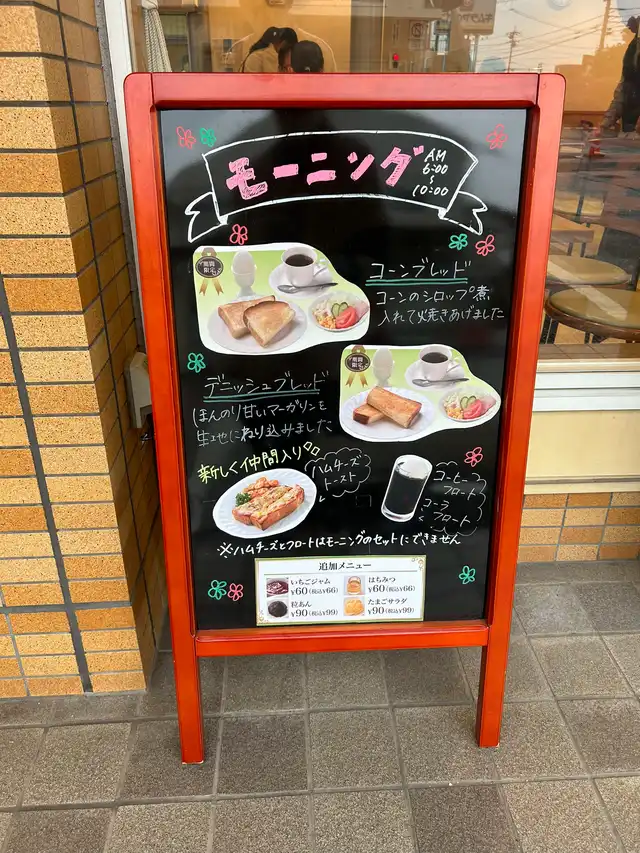 モーニング
AM
6:00
〜
10:00
期間
限定
コーンブレッド
コーンのシロップ煮
入れて焼きあげました
期間
限定
デニッシュブレッド
ほんのり甘いマーガリンを
生地にねり込みました
新しく仲間入り
ハムチーズ
トースト
コーヒー
フロート
コーラ
フロート
※ハムチーズとフロートはモーニングのセットにできません
追加メニュー
いちごジャム
¥60(税込¥66)
はちみつ
¥60(税込¥66)
粒あん
¥90(税込¥99)
たまごサラダ
¥90(税込¥99)